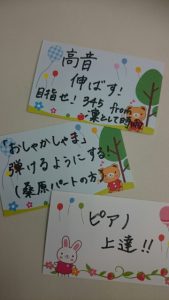 高音
伸ばす!
目指せ! 345 from
凛として時雨
「おしゃかしゃま」
弾けるようにする
(桑原パートの方)
ピアノ
上達!!